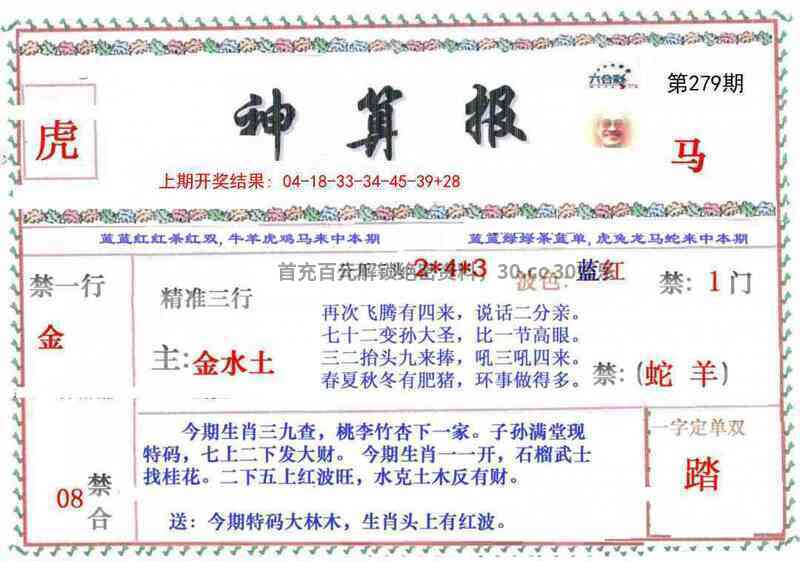 六合彩
第279期
虎
神算报
马
上期开奖结果：04-18-33-34-45-39+28
蓝蓝红红杀红双,牛羊虎鸡马来中本期
蓝蓝绿绿杀蓝单,虎兔龙马蛇来中本期
首充百元解锁绝密资料，30.cc30
2*4*3
波色:
蓝红
禁一行
金
精准三行
主:金水土
再次飞腾有四来，说话二分亲。
七十二变孙大圣，比一节高眼。
三二抬头九来捧，吼三吼四来。
春夏秋冬有肥猪，环事做得多。
禁:1门
禁:(蛇 羊)
08
禁合
今期生肖三九查，桃李竹杏下一家。子孙满堂现
特码，七上二下发大财。 今期生肖一一开，石榴武士
找桂花。二下五上红波旺，水克土木反有财。
送：今期特码大林木，生肖头上有红波。
一字定单双
踏